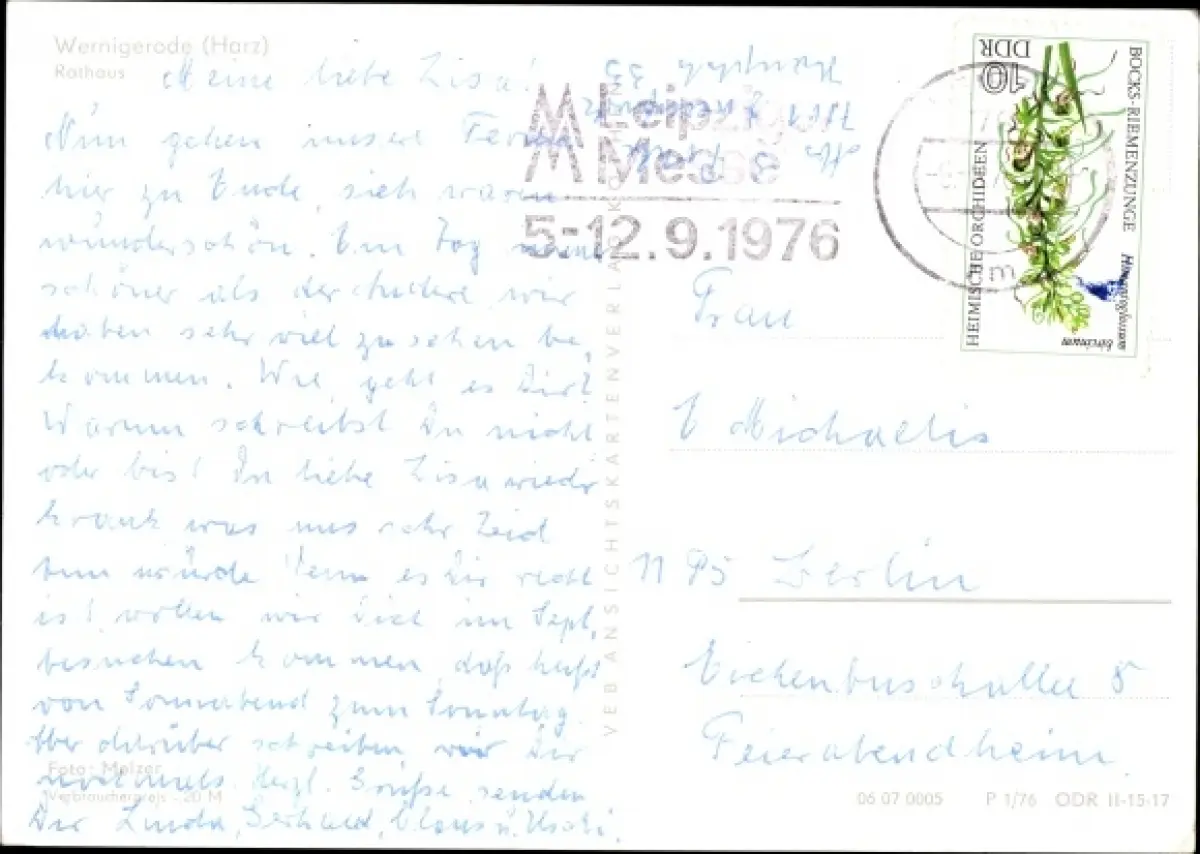 Wernigerode (Harz)
Rathaus
Meine liebe Lisa!
Nun gehen unsere Ferien
hier zu Ende, sich waren
wunderschön. Ein Tag
schöner als der andere wir
haben sehr viel zu sehen be,
kommen. Wie geht es Dir?
Warum schreibst Du nicht
oder bis! Du liebe Lisa wieder
krank was uns sehr Leid
tun würde Wenn es Dir recht
is! wollen wir Dich im Sept,
besuchen kommen, daß heißt
von Sonnabend zum Sonntag.
Aber darüber schreiben wir Dir
nochmals. Herzl. Grüße senden
Dir Linda, Gerhard, Claus u. Uschi,
Foto: Melzer
Verbraucherpreis -,20 M
VEB ANSICHTSKARTENVERLAG
Abs
3
33
Leipziger
Messe
MM
5.-12.9.1976
m
10
DDR
HEIMISCHE ORCHIDEEN
BOCKS-RIEMENZUNGE
Himantoglossum
hircinum
Frau
E Michaelis
1195 Berlin
Eichenbuschallee 8
Feierabendheim
06 07 0005 P 1/76 ODR II-15-17